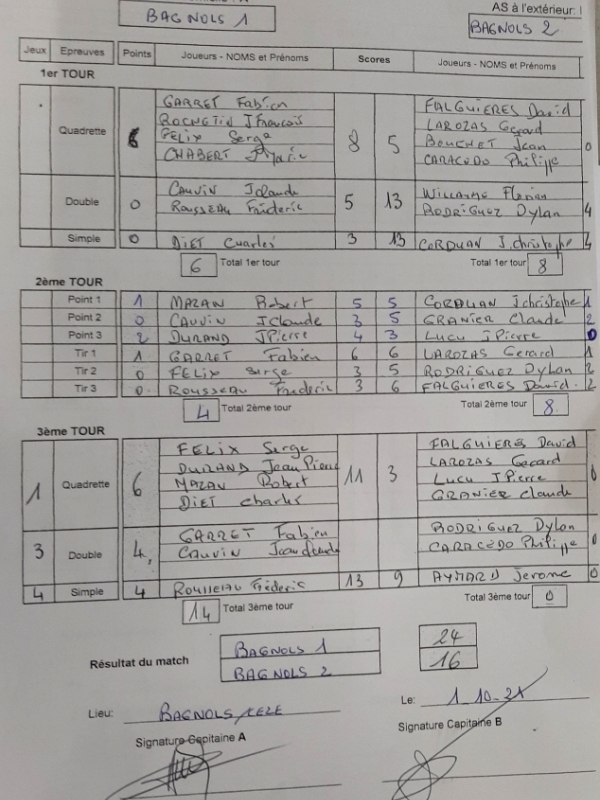 AS à l'extérieur:
BAGNOLS 1 BAGNOLS 2
Jeux Epreuves Points Joueurs - NOMS et Prénoms Scores Joueurs - NOMS et Prénoms
1er TOUR
GARRET Fabien FALGUIERES David
ROCHETIN JFrancois LAROZAS Gerard
Quadrette 6 8 5 0
FELIX Serge BOUCHET Jean
CHABERT J Marie CARACEDO Philippe
CAUVIN JClaude WILLAIME Florian
Double 0 5 13 4
ROUSSEAU Fréderic RODRIGUEZ Dylan
Simple 0 DIET Charles 3 13 CORDUAN J.christophe 4
6 Total 1er tour Total 1er tour 8
2ème TOUR
Point 1 1 MAZAN Robert 5 5 CORDUAN Jchristophe 1
Point 2 0 CAUVIN JClaude 3 5 GRANIER Claude 2
Point 3 2 DURAND JPierre 4 3 LUCU JPierre 0
Tir 1 1 GARRET Fabien 6 6 LAROZAS Gerard 1
Tir 2 0 FELIX Serge 3 5 RODRIGUEZ Dylan 2
Tir 3 0 ROUSSEAU Fréderic 3 6 FALGUIERES David 2
4 Total 2ème tour Total 2ème tour 8
3ème TOUR
FELIX Serge FALGUIERES David
DURAND Jean Pierre LAROZAS Gerard
1 Quadrette 6 11 3 0
MAZAN Robert LUCU JPierre
DIET Charles GRANIER Claude
GARRET Fabien RODRIGUEZ Dylan
3 Double 4 0
CAUVIN Jean Claude CARACEDO Philippe
4 Simple 4 ROUSSEAU Fréderic 13 9 AYMARD Jerome 0
14 Total 3ème tour Total 3ème tour 0
Résultat du match BAGNOLS 1 24
BAGNOLS 2 16
Lieu: BAGNOLS/CEZE Le: 1-10-21
Signature Capitaine A Signature Capitaine B